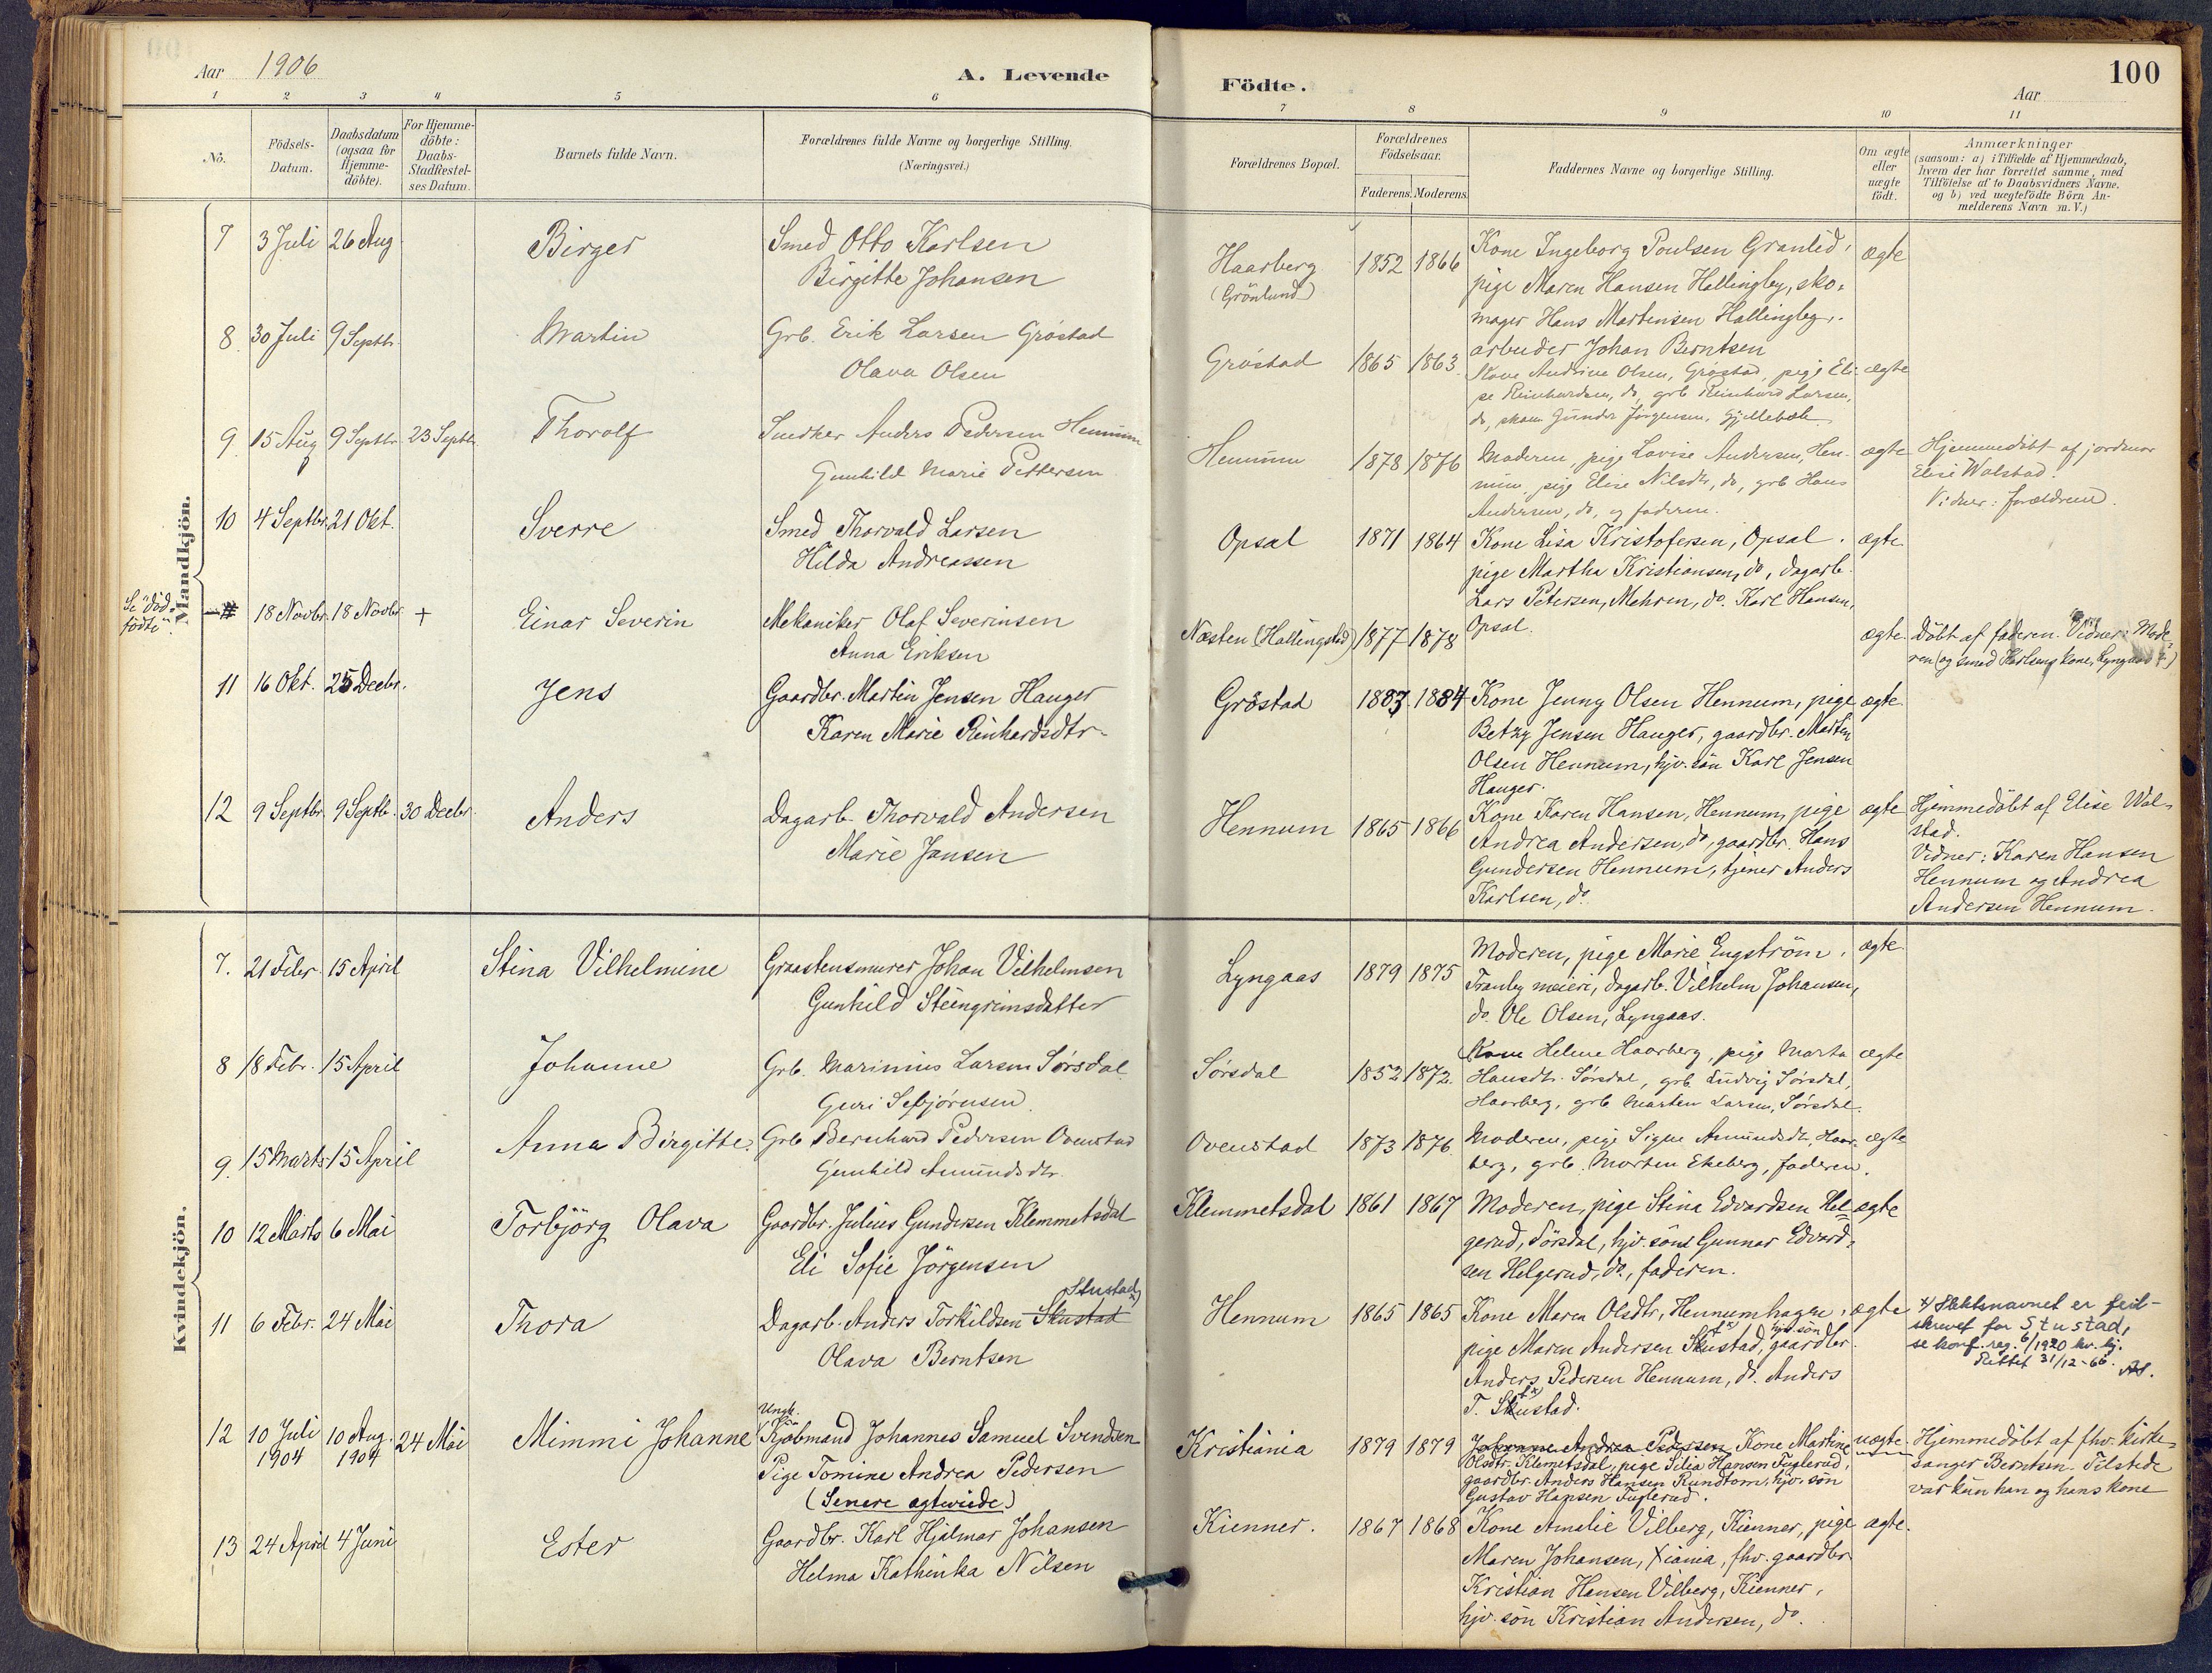 Aar 1906
A. Levende
Födte.
Aar
100
1 2 3 4 5 6 7 8 9 10 11
No.
Födsels-
Datum.
Daabsdatum
(ogsaa for
Hjemme-
döbte).
For Hjemme-
döbte:
Daabs-
Stadfæstel-
ses Datum.
Barnets fulde Navn.
Forældrenes fulde Navne og borgerlige Stilling.
(Næringsvei.)
Forældrenes Bopæl.
Forældrenes
Födselsaar.
Faderens. Moderens.
Faddernes Navne og borgerlige Stilling.
Om ægte
eller
uægte
födt.
Anmærkninger
(saasom: a) i Tilfælde af Hjemmedaab,
hvem der har forrettet samme, med
Tilföielse af to Daabsvidners Navne.
og b) ved uægtefödte Börn An-
melderens Navn m. V.)
Mandkjön.
7 3 Juli 26 Aug Birger Smed Otto Karlsen
Birgitte Johansen
Haarberg
(Grönlund)
1852 1866
Kone Ingeborg Poulsen Granlid,
pige Maren Hansen Hallingby, sko-
mager Hans Martensen Hallingby,
arbeider Johan Berntsen
ægte
8 30 Juli 9 Septb. Martin Grb. Erik Larsen Gröstad
Olava Olsen
Gröstad 1865 1863
Kone Andrine Olsen, Gröstad, pige Eli-
se Reinhardsen, do, grb Reinhard Larsen,
do, skom Gunder Jörgensen, Gjellebæk
ægte
9 15 Aug 9 Septb. 23 Septb. Thorolf Snedker Anders Pedersen Hennum
Gunhild Marie Pettersen
Hennum 1878 1876
Moderen, pige Lovise Andersen, Hen-
num, pige Elise Nilsdtr, do, grb Hans
Andersen, do, og faderen.
ægte
Hjemmedöbt af jordmor
Elise Walstad.
Vidner: forældrene.
10 4 Septbr. 21 Okt. Sverre Smed Thorvald Larsen
Hilda Andreassen
Opsal 1871 1864
Kone Lisa Kristofersen, Opsal.
pige Martha Kristiansen, do, dagarb.
Lars Petersen, Mehren, do. Karl Hansen,
Opsal.
ægte
Se "död-
födte".
18 Novbr. 18 Novbr. + Einar Severin Mekaniker Olaf Severinsen
Anna Eriksen
Næsten (Hallingstad) 1877 1878
ægte
Döbt af faderen. Vidner: Mode-
ren (og smed Karlsens kone, Lyngaas?)
11 16 Okt. 25 Decbr. Jens Gaardbr. Martin Jensen Hauger
Karen Marie Reinhardsdtr.
Gröstad 1883 1884
Kone Jenny Olsen Hennum, pige
Betzy Jensen Hauger, gaardbr. Martin
Olsen Hennum, hjv. sön Karl Jensen
Hauger.
ægte
12 9 Septbr. 9 Septb. 30 Decbr. Anders Dagarb. Thorvald Andersen
Marie Jansen
Hennum 1865 1866
Kone Karen Hansen, Hennum, pige
Andrea Andersen, do, gaardbr. Hans
Gundersen Hennum, tjener Anders
Karlsen, do.
ægte
Hjemmedöbt af Elise Wal-
stad.
Vidner: Karen Hansen
Hennum og Andrea
Andersen Hennum.
Kvindekjön.
7. 21 Febr 15 April Stina Vilhelmine Graastensmurer Johan Vilhelmsen
Gunhild Steingrimsdatter
Lyngaas 1879 1875
Moderen, pige Marie Engström,
Tranby meieri, dagarb. Vilhelm Johansen,
do. Ole Olsen, Lyngaas.
ægte
8 18 Febr. 15 April Johanne Grb. Marinius Larsen Sörsdal
Guri Sebjörnsen
Sörsdal 1852 1872
Kone Helene Haarberg, pige Marta
Hansdtr. Sörsdal, grb. Ludvig Sörsdal,
Haarberg, grb Marten Larsen, Sörsdal.
ægte
9. 15 Marts 15 April Anna Birgitte. Grb Bernhard Pedersen Ovenstad
Gunhild Amundsdtr.
Ovenstad 1873 1876
Moderen, pige Signe Amundsdtr, Haar-
berg, grb. Morten Ekeberg, faderen.
ægte
10 12 Marts 6 Mai Torbjörg Olava Gaardbr. Julius Gundersen Klemmetsdal
Eli Sofie Jörgensen
Klemmetsdal 1861 1867
Moderen, pige Stina Edvardsen Hel-
gerud, Sörsdal, hjv. söns Gunnar Edvard-
sen Helgerud, do, faderen.
ægte
11 6 Febr. 24 Mai Thora Dagarb. Anders Torkildsen Skustad Stustad x)
Olava Berntsen
Hennum 1865 1865
Kone Maren Olsdtr, Hennumhagen,
pige Maren Andersen Skustad, hjv. sön gaardbr.
Anders Pedersen Hennum, do. Anders
T. Skustad.
ægte
x) Slektsnavnet er feil-
skrevet for Stustad,
se konf. reg. 6/1920 kv. kj.
Rettet 31/12-66.
12 10 Juli 1904 10 Aug. 1904 24 Mai Mimmi Johanne Ungk.
Kjöbmand Johannes Samuel Svendsen
Pige Tomine Andrea Pedersen
(Senere ægteviede)
Kristiania 1879 1879
Johanne Andrea Pedersen, Kone Martine
Olsdtr. Klemetsdal, pige Silia Hansen Fuglerud,
gaardbr. Anders Hansen Rundtom, hjv. sön
Gustav Hansen Fuglerud.
uægte
Hjemmedöbt af fhv. kirke-
sanger Berntsen. Tilstede
var kun han og hans kone
13 24 April 4 Juni Ester Gaardbr. Karl Hjalmar Johansen
Helma Kathinka Nilsen
Kienner. 1867 1868
Kone Amalie Vilberg, Kienner, pige
Maren Johansen, Xiania, fhv. gaardbr
Kristian Hansen Vilberg, Kienner,
hjv. sön Kristian Andersen, do.
ægte.